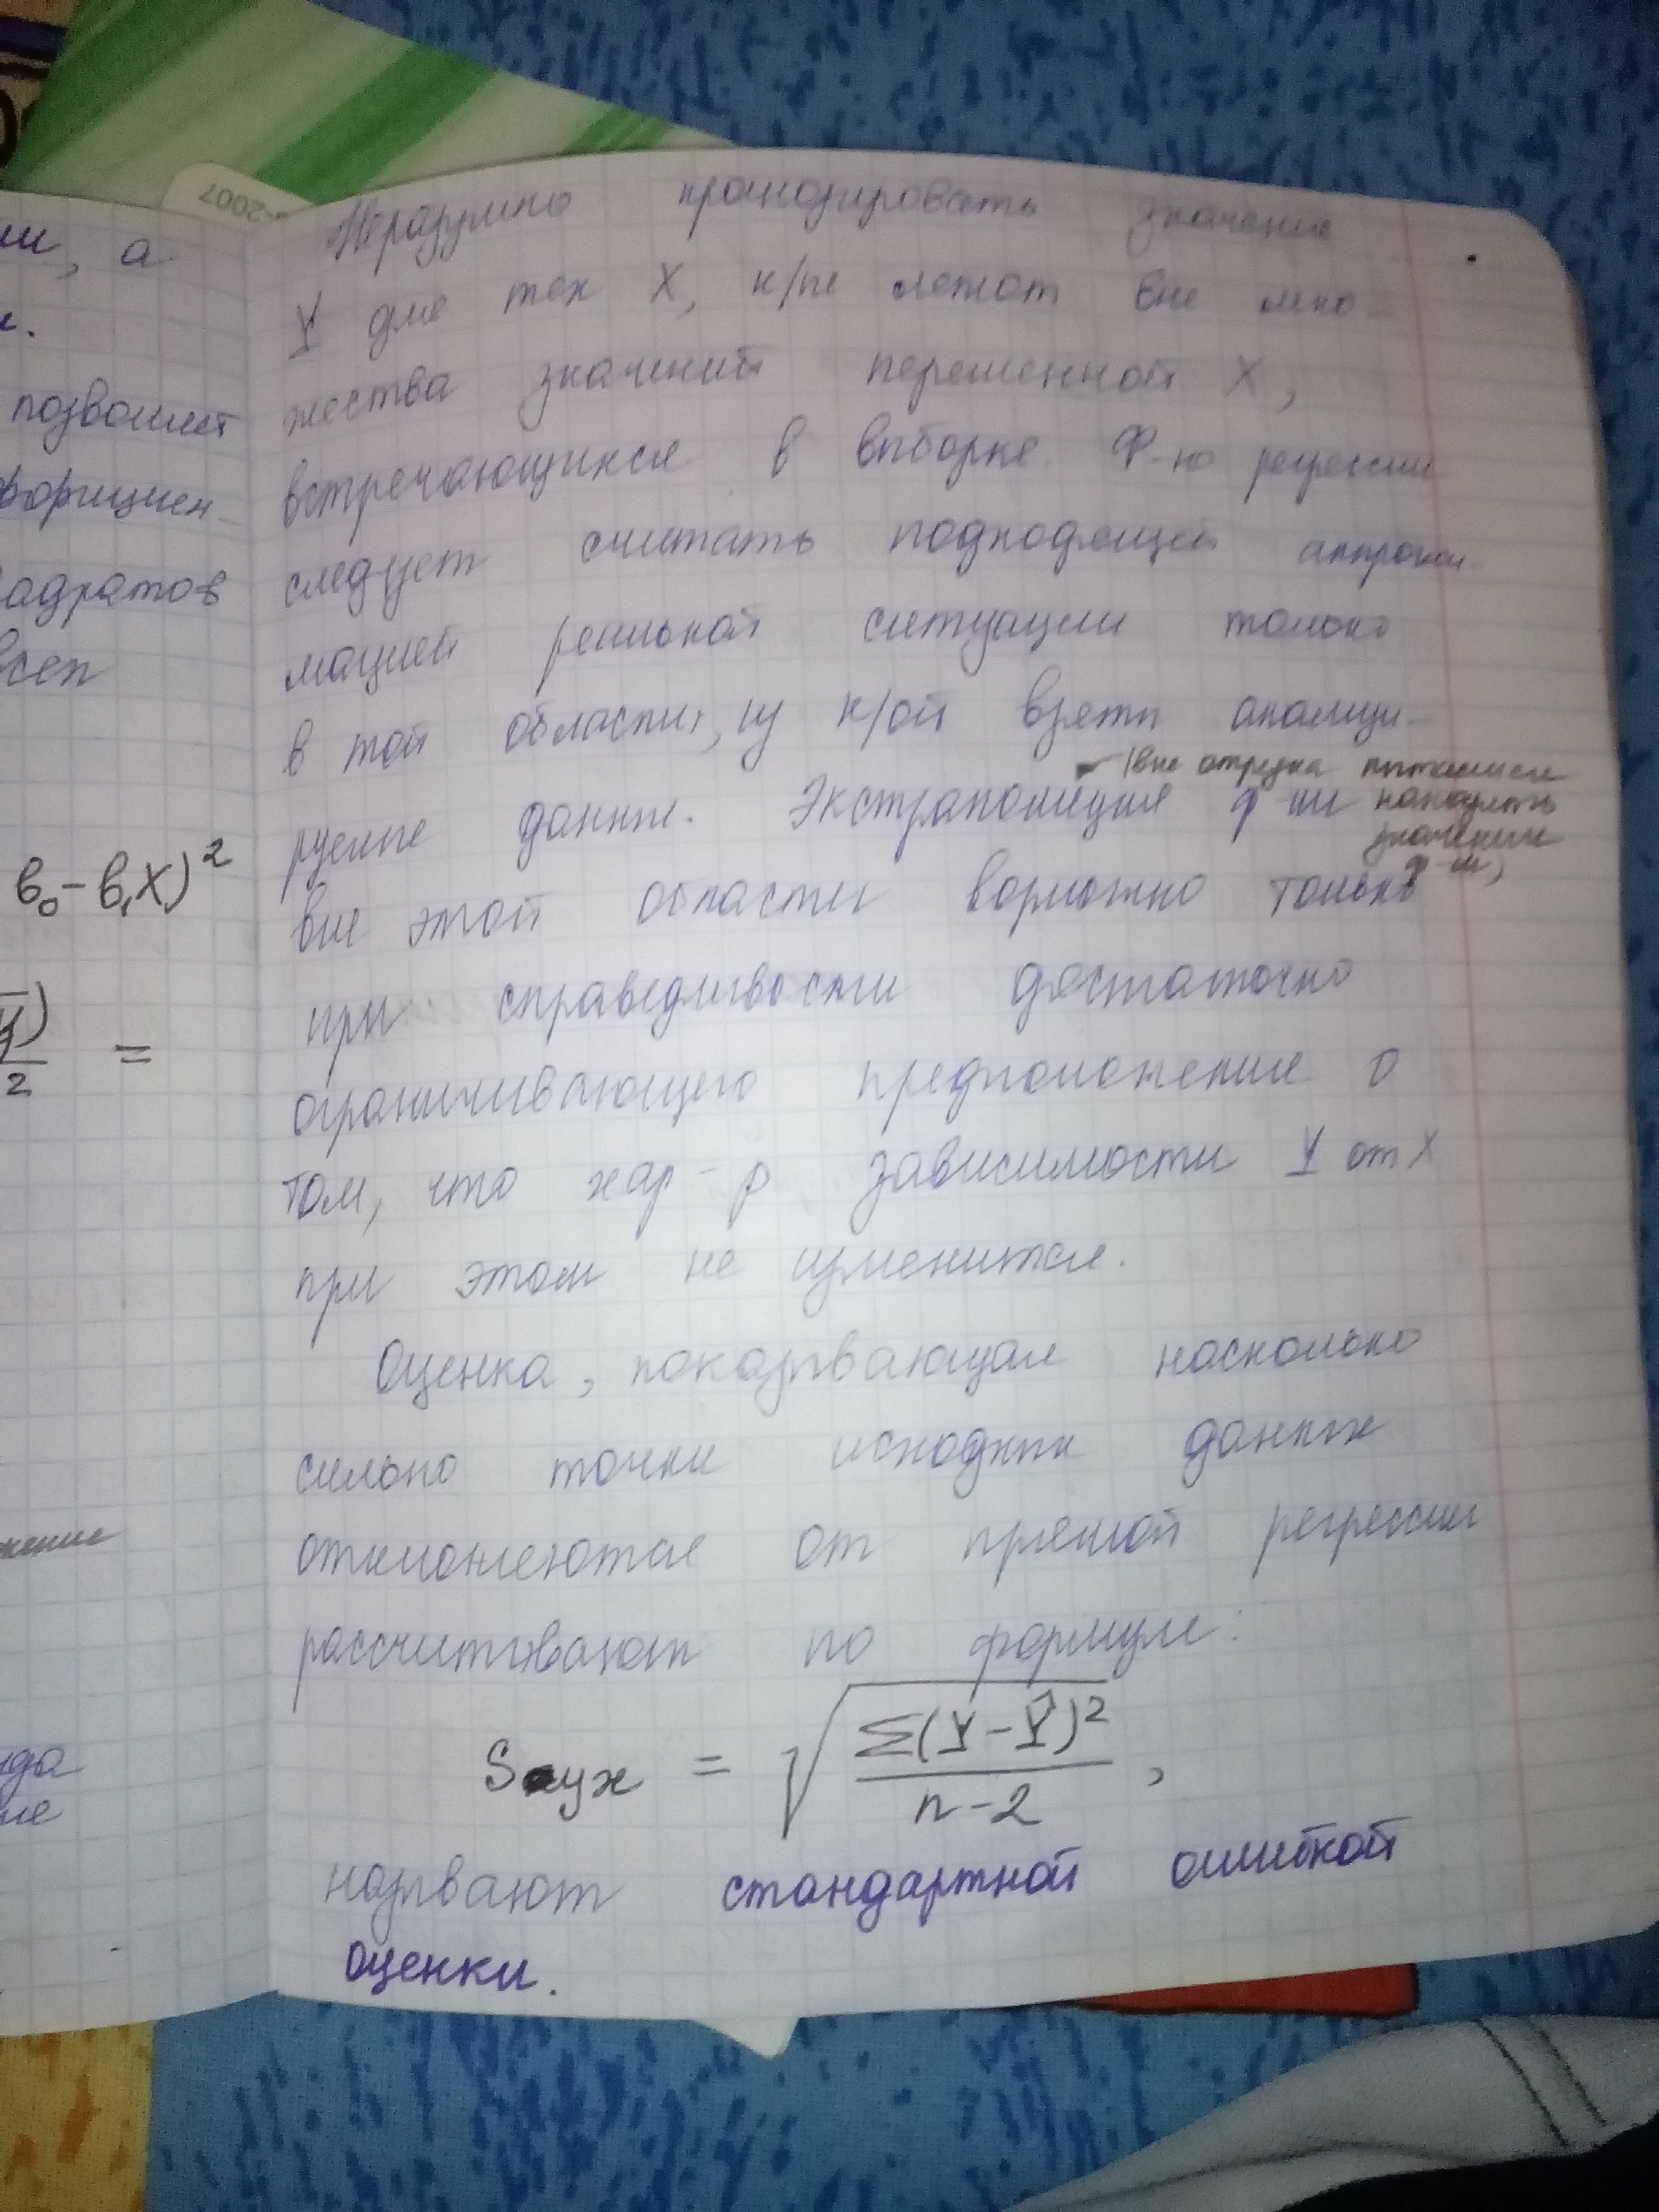 -2007
ии, а
и.
позволяет
эффициен-
адратов
всех
b₀ - b₁X)²
ȳ)
2 =
жение
да
ие
Неразумно прогнозировать значение
Y для тех X, к/ые лежат вне мно-
жества значений переменной X,
встречающихся в выборке. Ф-ю регрессии
следует считать подходящей аппрокси-
мацией реальной ситуации только
в той области, из к/ой взяты анализи-
руемые данные. Экстраполяция ф-ии
(вне отрезка пытаемся
находить
значение
ф-и)
вне этой области возможно только
при справедливости достаточно
ограничивающего предположение о
том, что хар-р зависимости Y от X
при этом не изменится.
Оценка, показывающая насколько
сильно точки исходных данных
отклоняются от прямой регрессии
рассчитывают по формуле:
Syx = √(Σ(Y-Ŷ)² / n-2),
называют стандартной ошибкой
оценки.